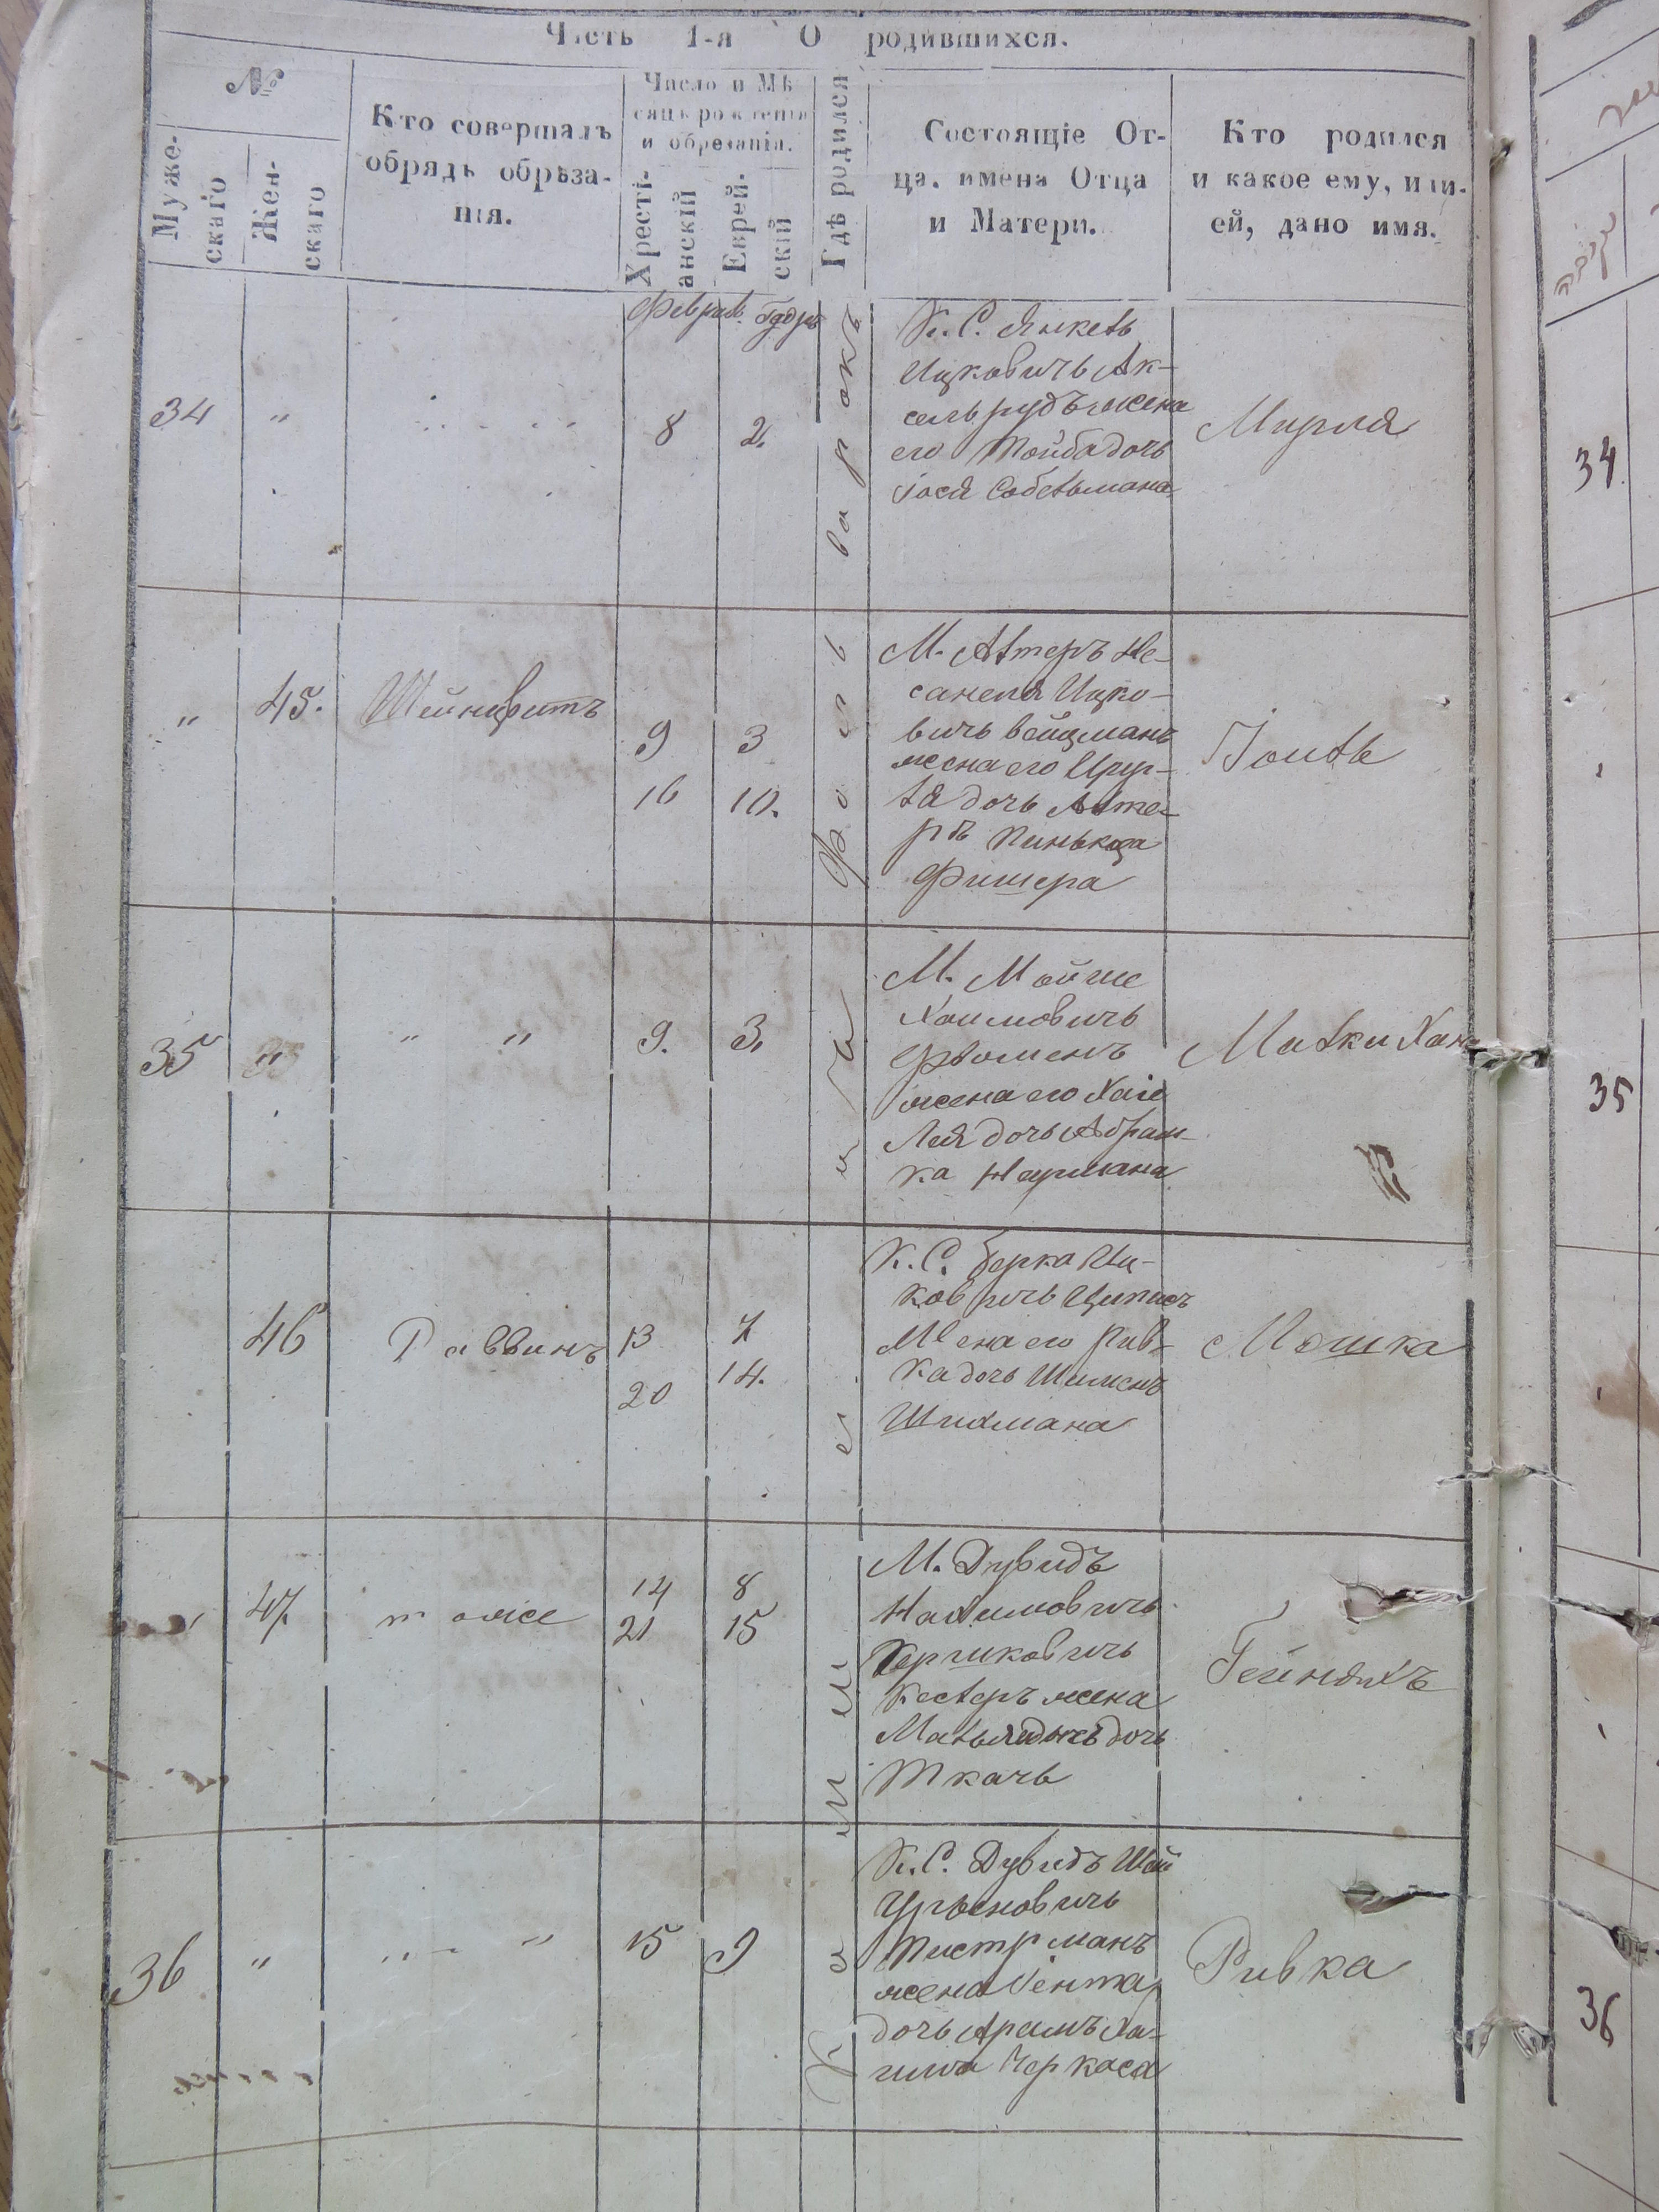 Часть 1-я О родившихся.
№
Муже-
скаго
Жен-
скаго
Кто совершалъ
обрядъ обрѣза-
нія.
Число и Мѣ
сяцъ рожденія
и обрезанія.
Хресті-
анскій
Еврей-
скій
Гдѣ родился
Состоящіе От-
ца, имена Отца
и Матери.
Кто родился
и какое ему, или-
ей, дано имя.
34 " 8 2.
К. С. Янкель
Ицковичъ Ак-
сельрудъ жена
его Тойба дочь
Іося Собельмана
Мирля
34
" 45. Шейнцвитъ
9 3
16 10.
М. Алтеръ Не-
санеля Ицко-
вичъ Вейцманъ
жена его Цру-
ля дочь Алте-
ръ Пинькаса
Фишера
Іоиль
35 " " " 9. 3.
М. Мойше
Хаимовичъ
жена его Хаіе
Лея дочь Абрам-
ка Наумана
Малки Хана
35
46 Раввинъ
13 7
20 14.
К. С. Берка Иц-
ковичъ Циписъ
Жена его Рив-
ка дочь Шименъ
Шихмана
Мошка
47. тоже
14 8
21 15
М. Дувидъ
Нахимовичъ
Гершковичъ
Кестеръ жена
дочь
Ткачъ
Гейнихъ
36 " " - " 15 9
К. С. Дувидъ Шай
Пистрманъ
жена Іента
дочь Арамъ Ха-
има Черкаса
Ривка
36